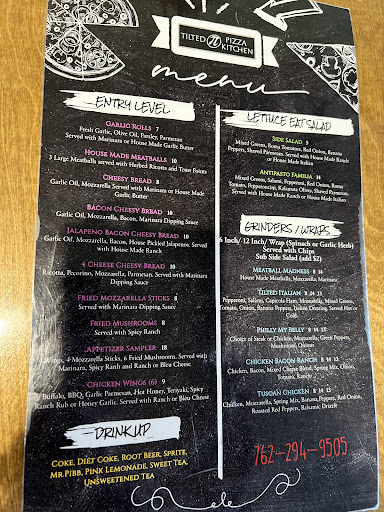 TILTED π PIZZA KITCHEN
menu
ENTRY LEVEL
GARLIC ROLLS 7
Fresh Garlic, Olive Oil, Parsley, Parmesan
Served with Marinara or House Made Garlic Butter
HOUSE MADE MEATBALLS 10
3 Large Meatballs served with Herbed Ricotta and Toast Points
CHEESY BREAD 8
Garlic Oil, Mozzarella Served with Marinara or House Made
Garlic Butter
BACON CHEESY BREAD 10
Garlic Oil, Mozzarella, Bacon, Marinara Dipping Sauce
JALAPENO BACON CHEESY BREAD 10
Garlic Oil, Mozzarella, Bacon, House Pickled Jalapenos, Served
with House Made Ranch
4 CHEESE CHEESY BREAD 10
Ricotta, Pecorino, Mozzarella, Parmesan, Served with Marinara
Dipping Sauce
FRIED MOZZARELLA STICKS 8
Served with Marinara Dipping Sauce
FRIED MUSHROOMS 8
Served with Spicy Ranch
APPETIZER SAMPLER 18
Wings, 4 Mozzarella Sticks, 6 Fried Mushrooms, Served with
Marinara, Spicy Ranch and Ranch or Bleu Cheese
CHICKEN WINGS (6) 9
Buffalo, BBQ, Garlic Parmesan, Hot Honey, Teriyaki, Spicy
Ranch Rub or Honey Garlic. Served with Ranch or Bleu Cheese
DRINK UP
COKE, DIET COKE, ROOT BEER, SPRITE,
MR.PIBB, PINK LEMONADE, SWEET TEA,
UNSWEETENED TEA
LETTUCE EAT SALAD
SIDE SALAD 5
Mixed Greens, Roma Tomatoes, Red Onion, Banana
Peppers, Shaved Parmesan, Served with House Made Ranch
or House Made Italian
ANTIPASTO FAMILIA 14
Mixed Greens, Salami, Pepperoni, Red Onion, Roma
Tomato, Pepperoncini, Kalamata Olives, Shaved Parmesan
Served with House Made Ranch or House Made Italian
GRINDERS/WRAPS
6 Inch/ 12 Inch/ Wrap (Spinach or Garlic Herb)
Served with Chips
Sub Side Salad (add $2)
MEATBALL MADNESS 8 14
House Made Meatballs, Mozzarella, Marinara
TILTED ITALIAN 8 14 13
Pepperoni, Salami, Capicola Ham, Mozzarella, Mixed Greens,
Tomato, Onion, Banana Peppers, Italian Dressing, Served Hot or
Cold
PHILLY MY BELLY 8 14 13
Choice of Steak or Chicken, Mozzarella, Green Peppers,
Mushroom, Onions
CHICKEN BACON RANCH 8 14 13
Chicken, Bacon, Mixed Cheese Blend, Spring Mix, Onion,
Tomato, Ranch
TUSCAN CHICKEN 8 14 13
Chicken, Mozzarella, Spring Mix, Banana Peppers, Red Onion,
Roasted Red Peppers, Balsamic Drizzle
762-294-9505